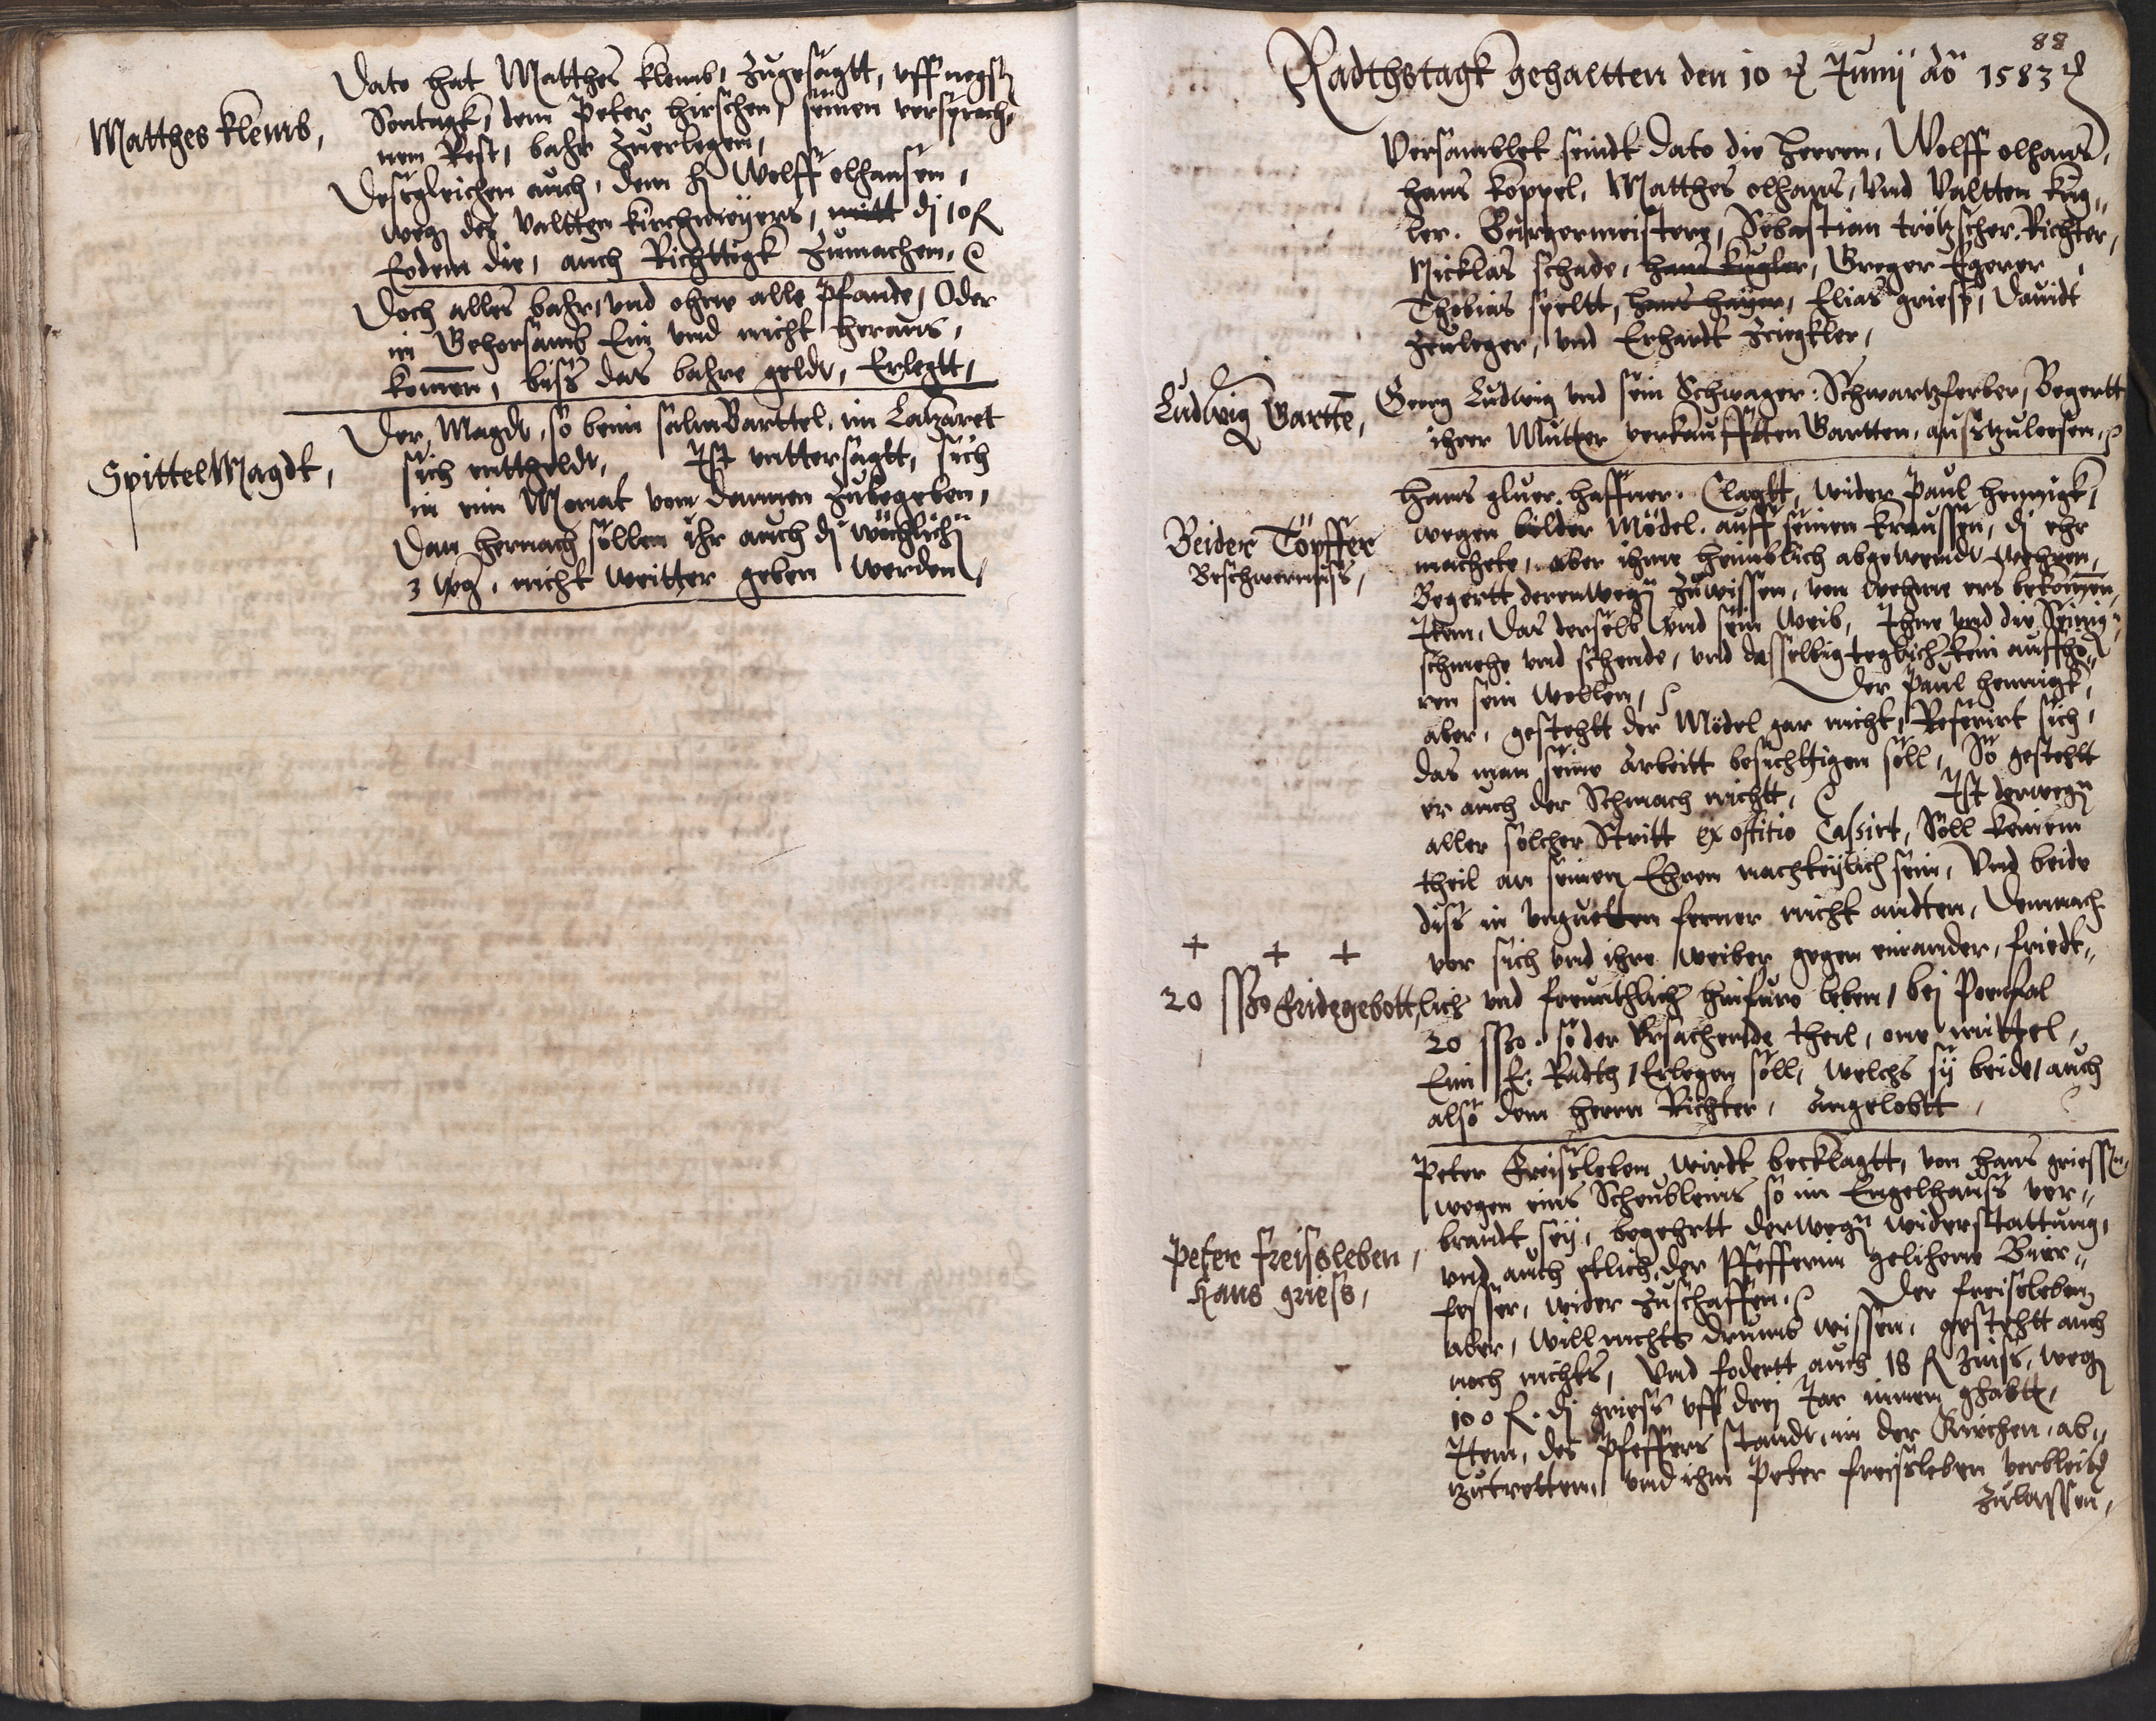 Matthes klemb,
Dato hat Matthes klemb, zugesagtt, uff negstn
Sontagk, dem Peter hirschen, seinen versproch„
nen Rest, bahr zuerlegen,
Desgleichen auch, dem h Wolff olhansen,
wegn des Valtten kirchmeyers, mitt di 10 fl
Eodem die, auch Richttigk zumachen,
Doch alles bahr, und ohne alle Pfande, Oder
in Gehorsamb Ein und nicht heraus,
komen, biss das bahre geldt, Erlegtt,
SpittelMagdt,
Der Magdt, so beim salmBarttel, im Latzaret
sich entheldt, Ist unttersagtt, sich
in ein Monat von dannen zubegeben,
Dan hernach sollen ihr auch di wöchlichn
3 wg, nicht weitter geben werden,
88
Radthstagk gehaltten den 10 Junij ao 1583
Versamblet seindt dato die herren, Wolff olhans,
hans köppel, Matthes olhans, Und Valtten kug„
ler. Burgermeistere, Sebastian trötzscher Richter,
Nicklas schade, hans kugler, Greger Egerer,
Thobias speltt, hans hayer, Elias griess, Dauidt
Zeuleger, und Erhardt Zeigkler,
Ludwig Gartte,
Georg Ludwig und sein Schwager: Schwartzferber, Begertt
ihrer Mutter verkaufftten Gartten, ausszuleesen,
Beider Töpffer
Beschwernuss,
Hans gluer haffner. Clagtt, wider Paul hennigk,
wegen bilder Mödel. auff seinen kraussen, di ehr
machete, aber ihme heimblich abgewendt wehren,
Begertt derentwegn zuwissen, von wehme ers bekomen,
Item, Das derselb und sein Weib, Ihne und die Seinign
schmehe und schende, und dasselbig teglich kein auffhö„
ren sein wollen, Der Paul hennigk,
aber, gestehtt der Mödel gar nicht, Referirt sich,
das man seine Arbeitt besichttigen soll, So gestehtt
er auch der Schmach nichtt, Ist derwegn
aller solcher Stritt ex offitio Cassirt, Soll keinem
theil an seinen Ehren nachteylich sein, Und beide
diss in unguetten ferner nicht andten, Demnach
+ + +
vor sich und ihre Weiber gegen einander, friedt„
20 ssso fridegebott,
lich und freundtlich hinfuro leben, bei Poenfal
20 ssso. so der Ursachende theil, one mittel,
Eim E. Radth, Erlegen soll, Welchs sy beide, auch
also dem herrn Richter, Angelobtt,
Peter freissleben,
Hans griess,
Peter Freissleben wirdt becklagtt, von hans griessn
wegen eins Scheubleins so im Engelhauss ver„
brandt sey, begehrtt derwegn widerstattung,
und auch etlich, der Pfefferin gelihene Bier„
fesser, wider zuschaffen. Der freissleben
aber, will nichts drumb wissen, gestehtt auch
noch nichts, Und fodertt auch 18 fl Zinss, wegn
100 fl. di griess uff drei Jar innen ghabtt,
Item, des Pfeffers standt, in der Kirchen, ab„
zutretten, und ihm Peter freissleben verbleibn
zulassen,